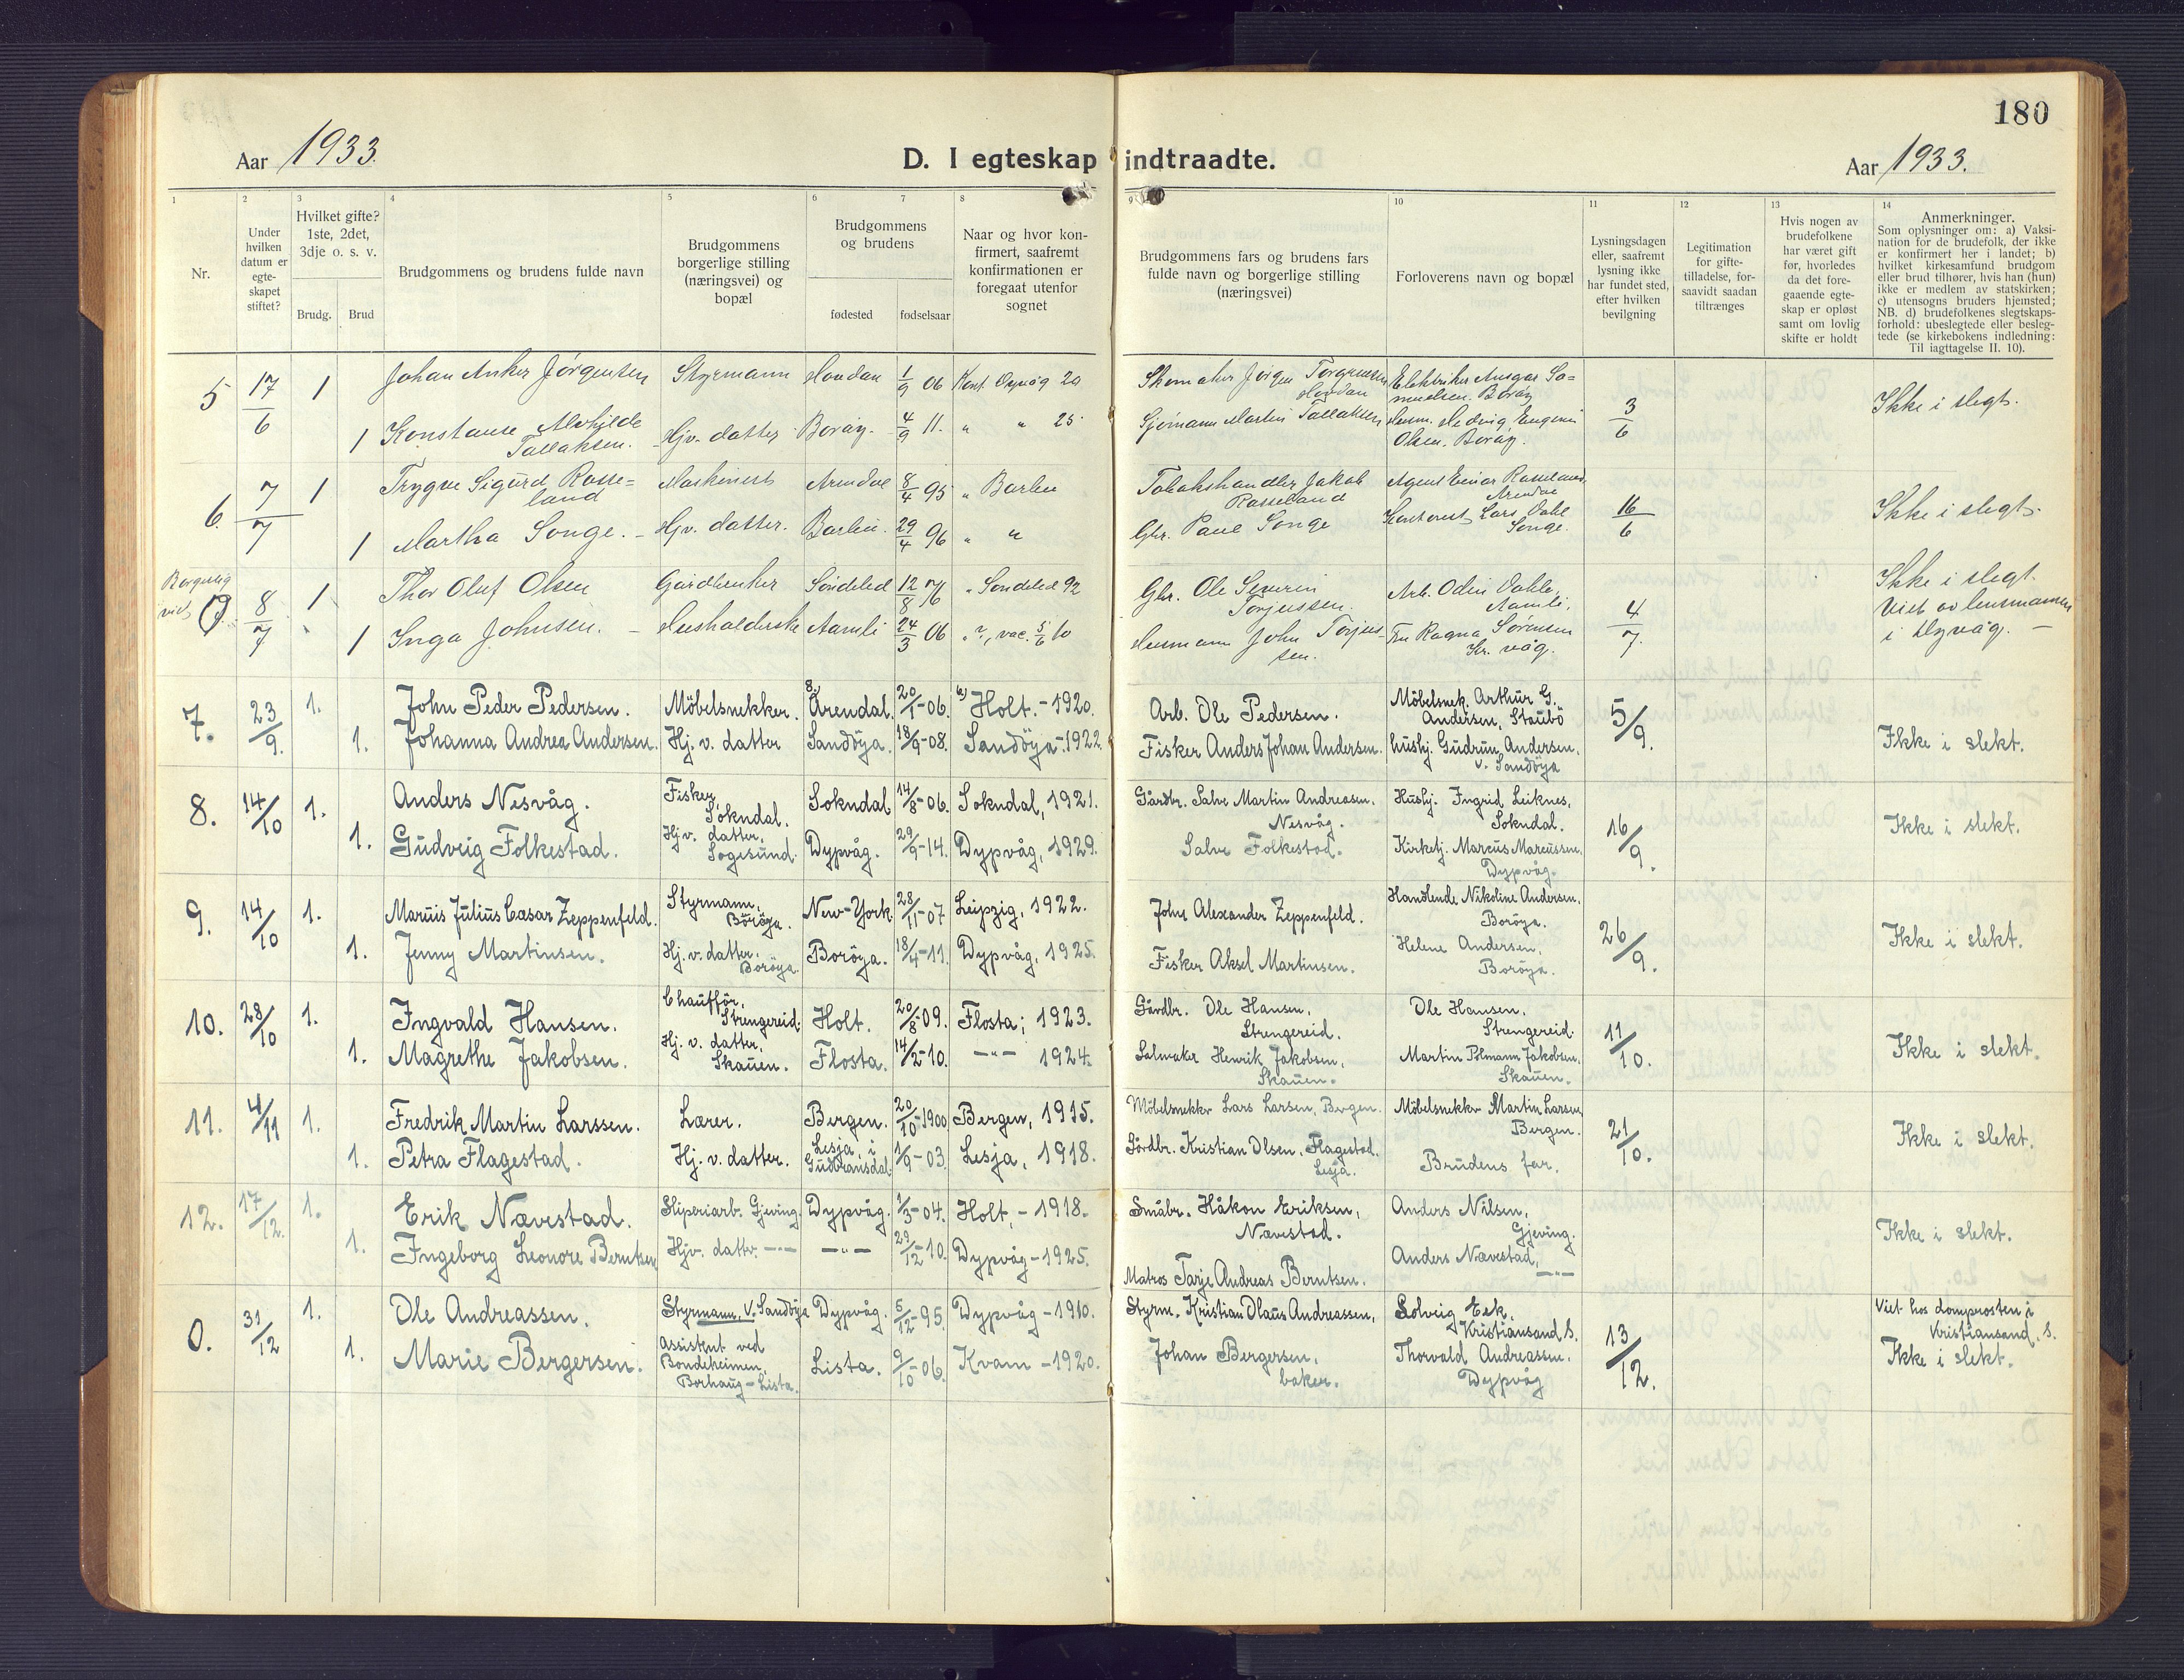 180
Aar 1933.
D. I egteskap indtraadte.
Aar 1933.
1
2
3
4
5
6
7
8
9
10
11
12
13
14
Nr.
Under hvilken datum er egte-skapet stiftet?
Hvilket gifte? 1ste, 2det, 3dje o. s. v.
Brudg.
Brud
Brudgommens og brudens fulde navn
Brudgommens borgerlige stilling (næringsvei) og bopæl
Brudgommens og brudens
fødested
fødselsaar
Naar og hvor kon-firmert, saafremt konfirmationen er foregaat utenfor sognet
Brudgommens fars og brudens fars fulde navn og borgerlige stilling (næringsvei)
Forloverens navn og bopæl
Lysningsdagen eller, saafremt lysning ikke har fundet sted, efter hvilken bevilgning
Legitimation for gifte-tilladelse, for-saavidt saadan tiltrænges
Hvis nogen av brudefolkene har været gift før, hvorledes da det fore-gaaende egte-skap er opløst samt om lovlig skifte er holdt
Anmerkninger.
Som oplysninger om: a) Vaksi-nation for de brudefolk, der ikke er konfirmert her i landet; b) hvilket kirkesamfund brudgom eller brud tilhører, hvis han (hun) ikke er medlem av statskirken; c) utensogns bruders hjemsted; NB. d) brudefolkenes slegtskaps-forhold: ubeslegtede eller beslegtede (se kirkebokens indledning: Til iagttagelse II. 10).
5 17/6 1 Johan Anker Jörgensen Styrmann 1/9 06 Konf. Dypvåg 20 Skomaker Jörgen Elektriker Ansgar Sa=
muelsen. Boröy 3/6 Ikke i slegt.
1 Konstanse Alvhilde
Tallaksen. Hjv. datter Boröy. 4/9 11. " " 25 Sjömann Martin Tallaksen Hedvig Eugenie
Olsen. Boröy.
6. 7/7 1 Trygve Sigurd Rosse=
land Maskinist Arendal 8/4 95 " Barbu Tobakshandler Jakob
Rosseland Agent Einar Rosseland
Arendal 16/6 Ikke i slegt.
1 Martha Songe. - Hjv. datter. Barbu. 29/4 96 " " Gbr. Paul Songe Kontorist Lars Dahl
Songe.
Borgerlig
viet 0. 8/7 1 Thor Oluf Olsen Gårdbruker Söndeled 12/8 76 " Söndeled 92 Gbr. Ole Severin
Torjussen. Arb. Odin Dahle,
Aamli. 4/7. Ikke i slegt.
Viet av lensmannen
i Dypvåg. -
1 Inga Johnsen. - Husholderske Aamli 24/3 06 " ?, vac. 5/6 10 Husmann John Torjus-
sen. Fru Ragna Sörensen
Kr. våg.
7. 23/9. 1. John Peder Pedersen. Möbelsnekker. Arendal. 20/1-06. Holt. - 1920. Arb. Ole Pedersen. Möbelsnek. Arthur G.
Andersen, Staubö 5/9. Ikke i slekt.
1. Johanna Andrea Andersen. Hj. v. datter Sandöya. 18/9-08. Sandöya.-1922. Fisker Anders Johan Andersen. hushj. Gudrun Andersen,
v. Sandöya
8. 14/10 1. Anders Nesvåg. Fisker,
Sokndal. Sokndal 14/8-06. Sokndal, 1921. Gårdbr. Salve Martin Andreasen.
Nesvåg. Hushj. Ingrid Leiknes,
Sokndal. 16/9. Ikke i slekt.
1. Gudveig Folkestad. Hj v. datter,
Sogesund. Dypvåg. 29/9-14. Dypvåg, 1929. Salve Folkestad. Kirketj. Marcus Marcussen,
Dypvåg.
9. 14/10 1. Marius Julius Cæsar Zeppenfeld. Styrmann,
Böröya. New-York. 28/11-07 Leipzig, 1922. John Alexander Zeppenfeld. Handlende Nikoline Andersen,
Boröya. 26/9. Ikke i slekt.
1. Jenny Martinsen. Hj. v. datter.
Boröya. Boröya. 18/4-11. Dypvåg, 1925. Fisker Aksel Martinsen. Helene Andersen,
Boröya.
10. 28/10 1. Ingvald Hansen. Chaufför,
Strengereid. Holt. 20/8-09. Flosta; 1923. Gårdbr. Ole Hansen,
Strengereid. Ole Hansen,
Strengereid. 11/10. Ikke i slekt.
1. Magrethe Jakobsen. Hj. v. datter,
Skauen. Flosta. 14/2-10. -"- 1924. Salmaker Henrik Jakobsen,
Skauen. Martin Jakobsen.
Skauen.
11. 4/11 1. Fredrik Martin Larssen. Lærer. Bergen. 20/10-1900 Bergen, 1915. Möbelsnekker Lars Larsen, Bergen. Möbelsnekker Martin Larsen
Bergen. 21/10. Ikke i slekt.
1. Petra Flagestad. Hj. v. datter. Lesja, i
Gudbransdal. 1/9-03. Lesja, 1918. Gårdbr. Kristian Olsen, Flagestad.
Lesja. Brudens far.
12. 17/12. 1. Erik Nævestad. Sliperiarb. Gjeving. Dypvåg. 1/3-04. Holt, - 1918. Småbr. Håkon Eriksen,
Nævestad. Anders Nilsen,
Gjeving. Ikke i slekt.
1. Ingeborg Leonore Berntsen Hjv. datter. -"- -"- 29/12-10. Dypvåg - 1925. Matros Tarje Andreas Berntsen. Anders Nævestad,
-"-
0. 31/12 1. Ole Andreassen. Styrmann, V. Sandöya Dypvåg. 5/12-95. Dypvåg - 1910. Styrm. Kristian Olaus Andreassen, Solveig Eek,
Kristiansand S. 13/12. Viet hos domprosten i
Kristiansand. S.
Ikke i slekt.
1. Marie Bergersen. Assistent ved
Bondeheimen,
Borhaug - Lista. Lista. 9/10-06. Kvam - 1920. Johan Bergersen,
baker. Thorvald Andreassen.
Dypvåg